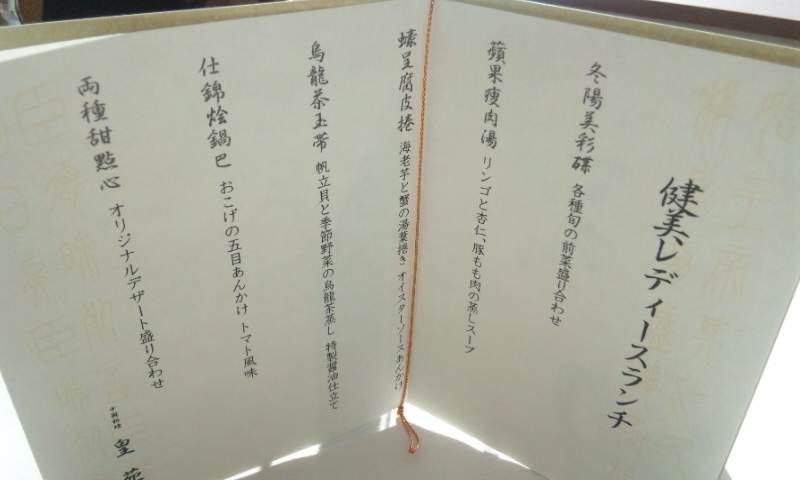 健美レディースランチ
冬陽美彩碟 各種旬の前菜盛り合わせ
蘋果痩肉湯 リンゴと杏仁、豚もも肉の蒸しスープ
蠔皇腐皮捲 海老芋と蟹の湯葉捲き オイスターソースあんかけ
烏龍茶玉帯 帆立貝と季節野菜の烏龍茶蒸し 特製醤油仕立て
什錦燴鍋巴 おこげの五目あんかけ トマト風味
両種甜點心 オリジナルデザート盛り合わせ
中国料理 皇苑